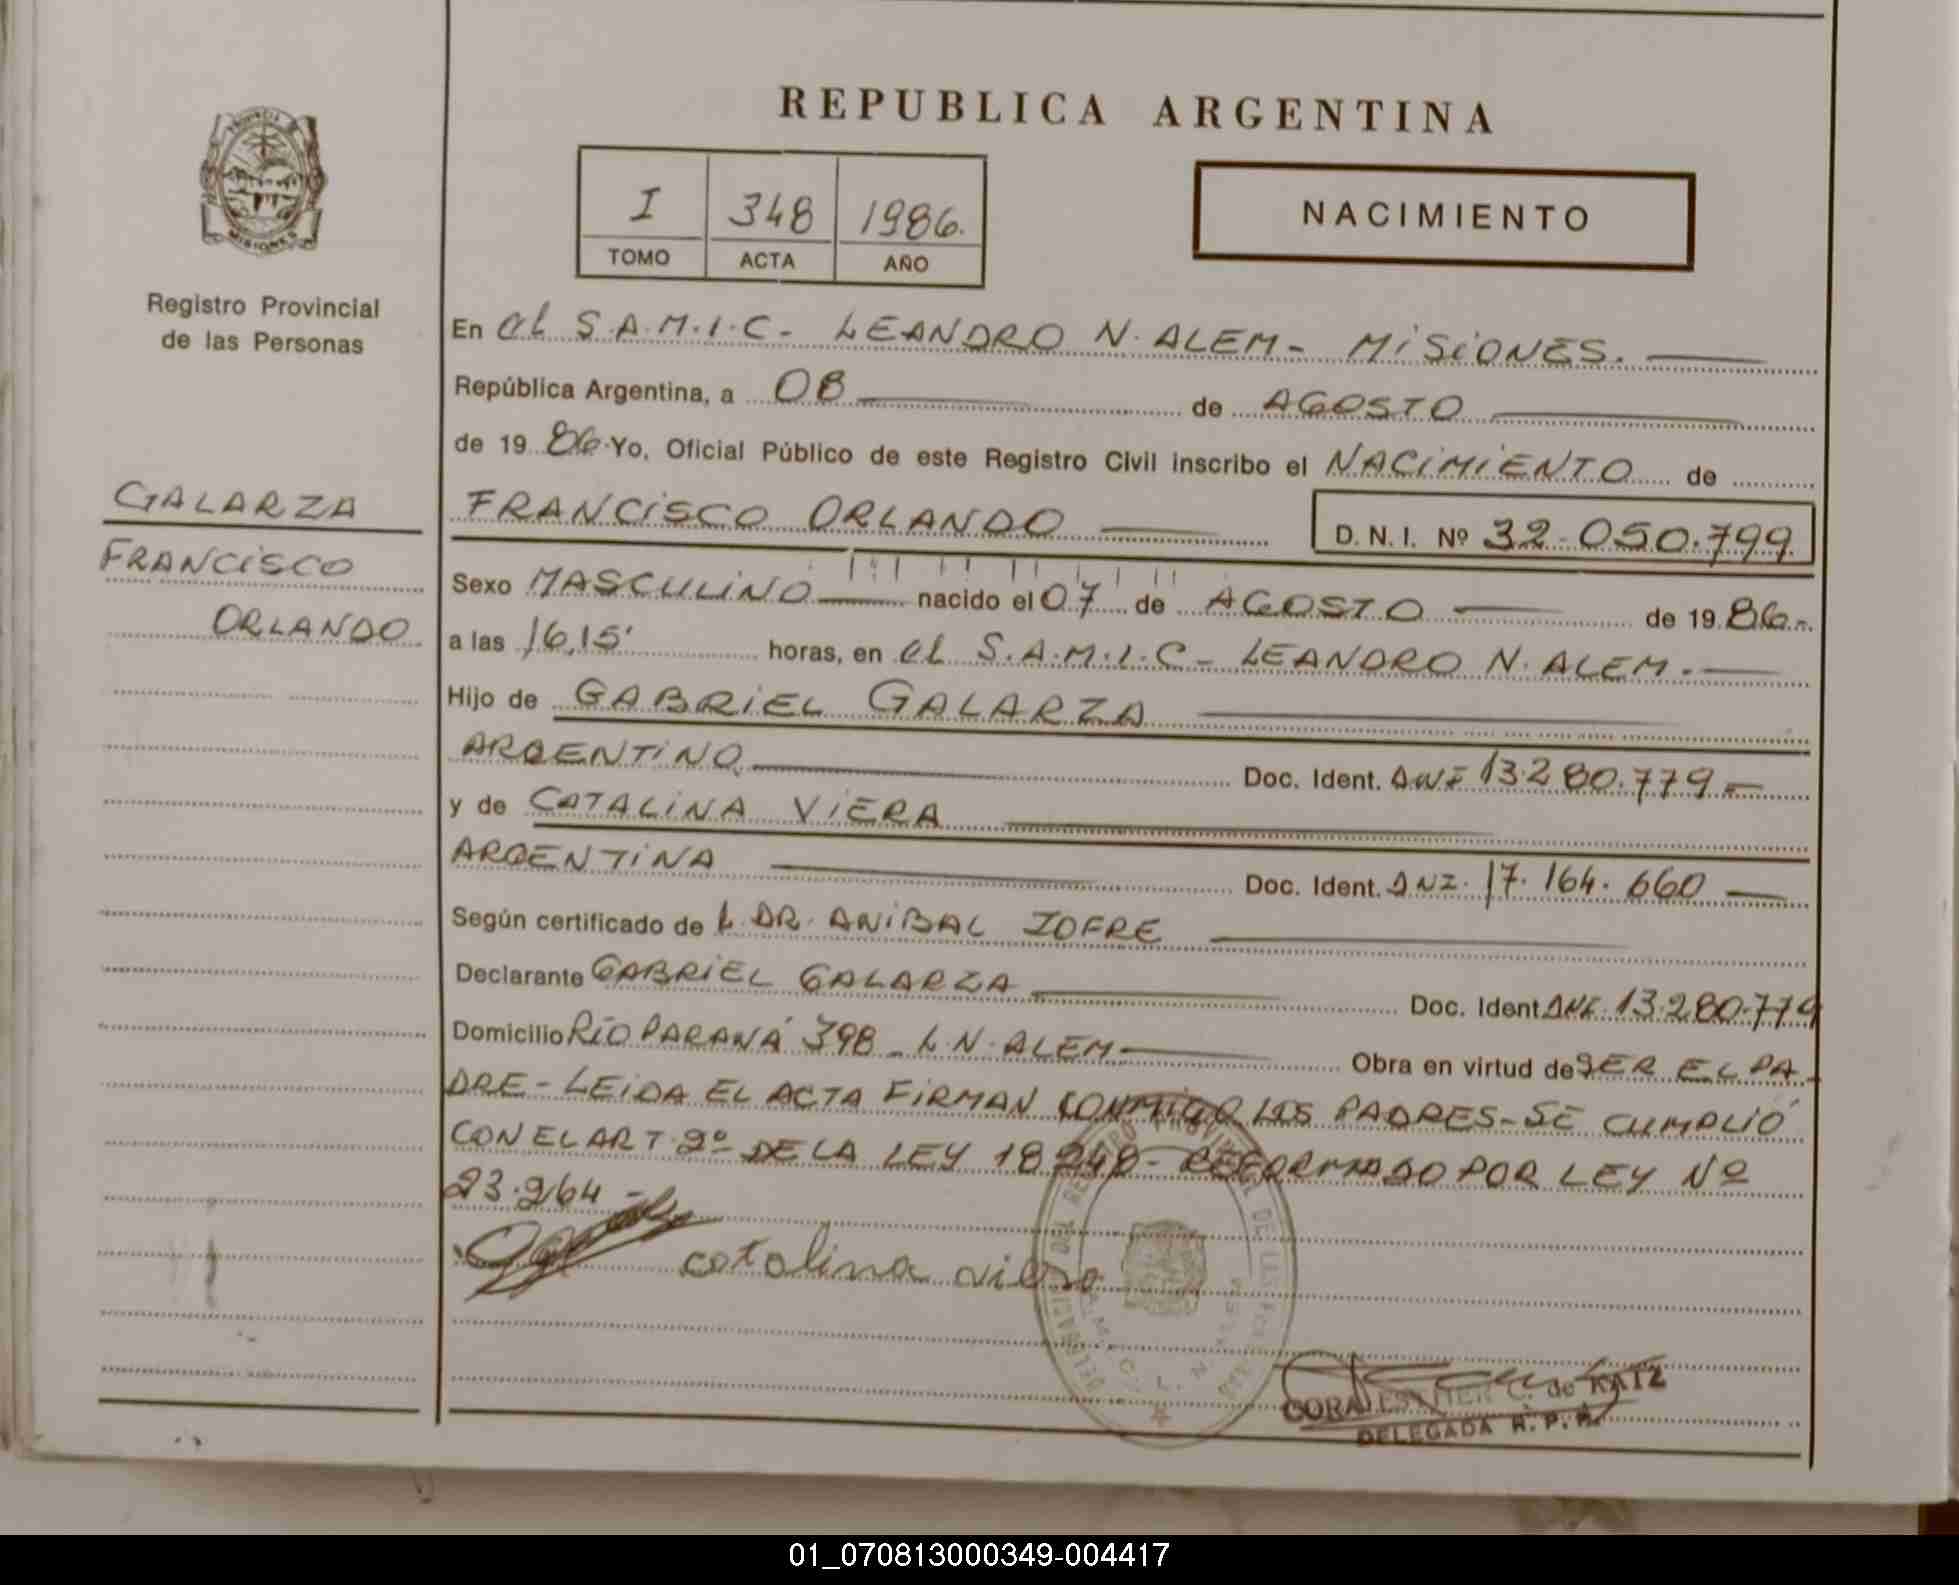 REPUBLICA ARGENTINA
I 348 1986.
TOMO ACTA AÑO
NACIMIENTO
MISIONES
Registro Provincial
de las Personas
GALARZA
FRANCISCO
ORLANDO
En el S.A.M.I.C- LEANDRO N. ALEM- MISIONES.
República Argentina, a 08 de AGOSTO
de 1986 Yo, Oficial Público de este Registro Civil inscribo el NACIMIENTO de
FRANCISCO ORLANDO D. N. I. Nº 32.050.799
Sexo MASCULINO nacido el 07 de AGOSTO de 1986.
a las 16,15' horas, en el S.A.M.I.C- LEANDRO N. ALEM.
Hijo de GABRIEL GALARZA
ARGENTINO Doc. Ident. DNI 13.280.779
y de CATALINA VIERA
ARGENTINA Doc. Ident. DNI. 17.164.660
Según certificado de L DR. ANIBAL JOFRE
Declarante GABRIEL GALARZA Doc. Ident DNI. 13.280.779
Domicilio RIO PARANÁ 398 - L.N. ALEM Obra en virtud de SER EL PA
DRE - LEIDA EL ACTA FIRMAN CONMIGO LOS PADRES-SE CUMPLIÓ
CON EL ART 2º DE LA LEY 18248- REFORMADO POR LEY Nº
23.264
catalina viera
CORA ESTHER C. de KATZ
DELEGADA R. P. P.
01_070813000349-004417